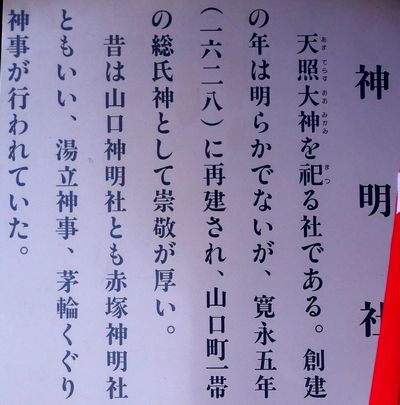 神明社
天照大神を祀る社である。創建
の年は明らかでないが、寛永五年
(一六二八)に再建され、山口町一帯
の総氏神として崇敬が厚い。
昔は山口神明社とも赤塚神明社
ともいい、湯立神事、茅輪くぐり
神事が行われていた。